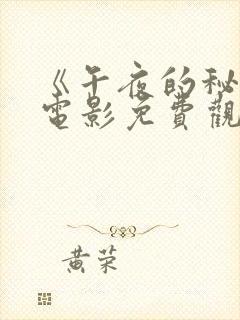 《午夜的秘
電影免費觀
黃荣